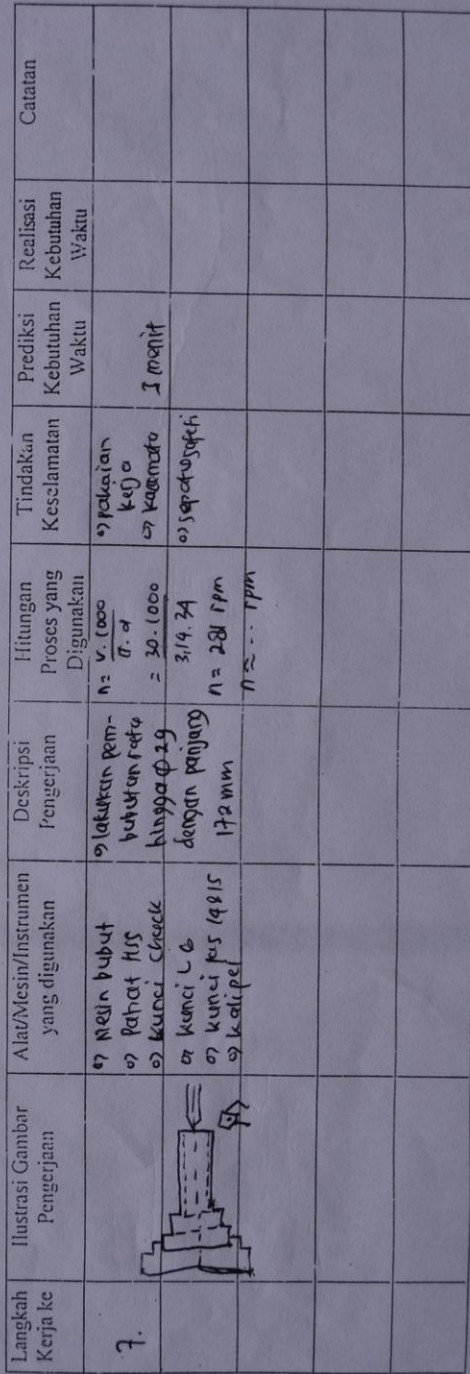 Langkah
Kerja ke
Ilustrasi Gambar
Pengerjaan
Alat/Mesin/Instrumen
yang digunakan
Deskripsi
Pengerjaan
Hitungan
Proses yang
Digunakan
Tindakan
Keselamatan
Prediksi
Kebutuhan
Waktu
Realisasi
Kebutuhan
Waktu
Catatan
7.
o) Mesin bubut
o) Pahat HSS
o) kunci check
o) kunci L 6
o) kunci pas 14&15
o) kaliper
o) lakukan pem-
bubutan rata
hingga ϕ 29
dengan panjang
172 mm
n = v.1000
π.d
= 30.1000
3,14.34
n = 281 rpm
n ≈ ... rpm
o) pakaian
kerja
o) kacamata
o) sepatu safeti
3 menit